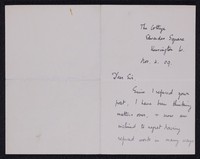 The Cottage
Square
Kensington W.
Nov. 2. 09.
Dear Sir
Since I refused your
post, I have been thinking
matters over, & am
inclined to regret having
refused work in many ways